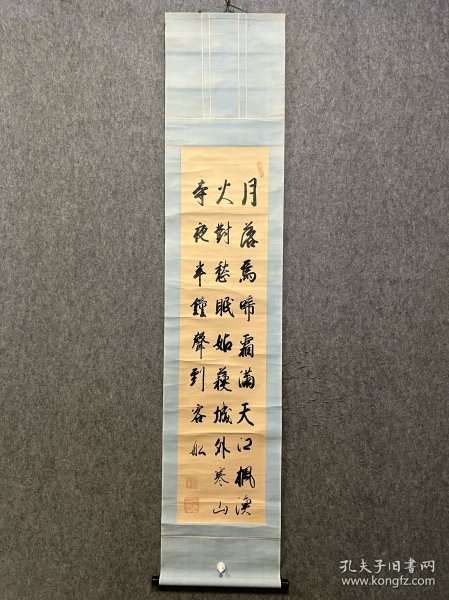 月落烏啼霜滿天江楓漁
火對愁眠姑蘇城外寒山
寺夜半鐘聲到客船
孔夫子旧书网
www.kongfz.com